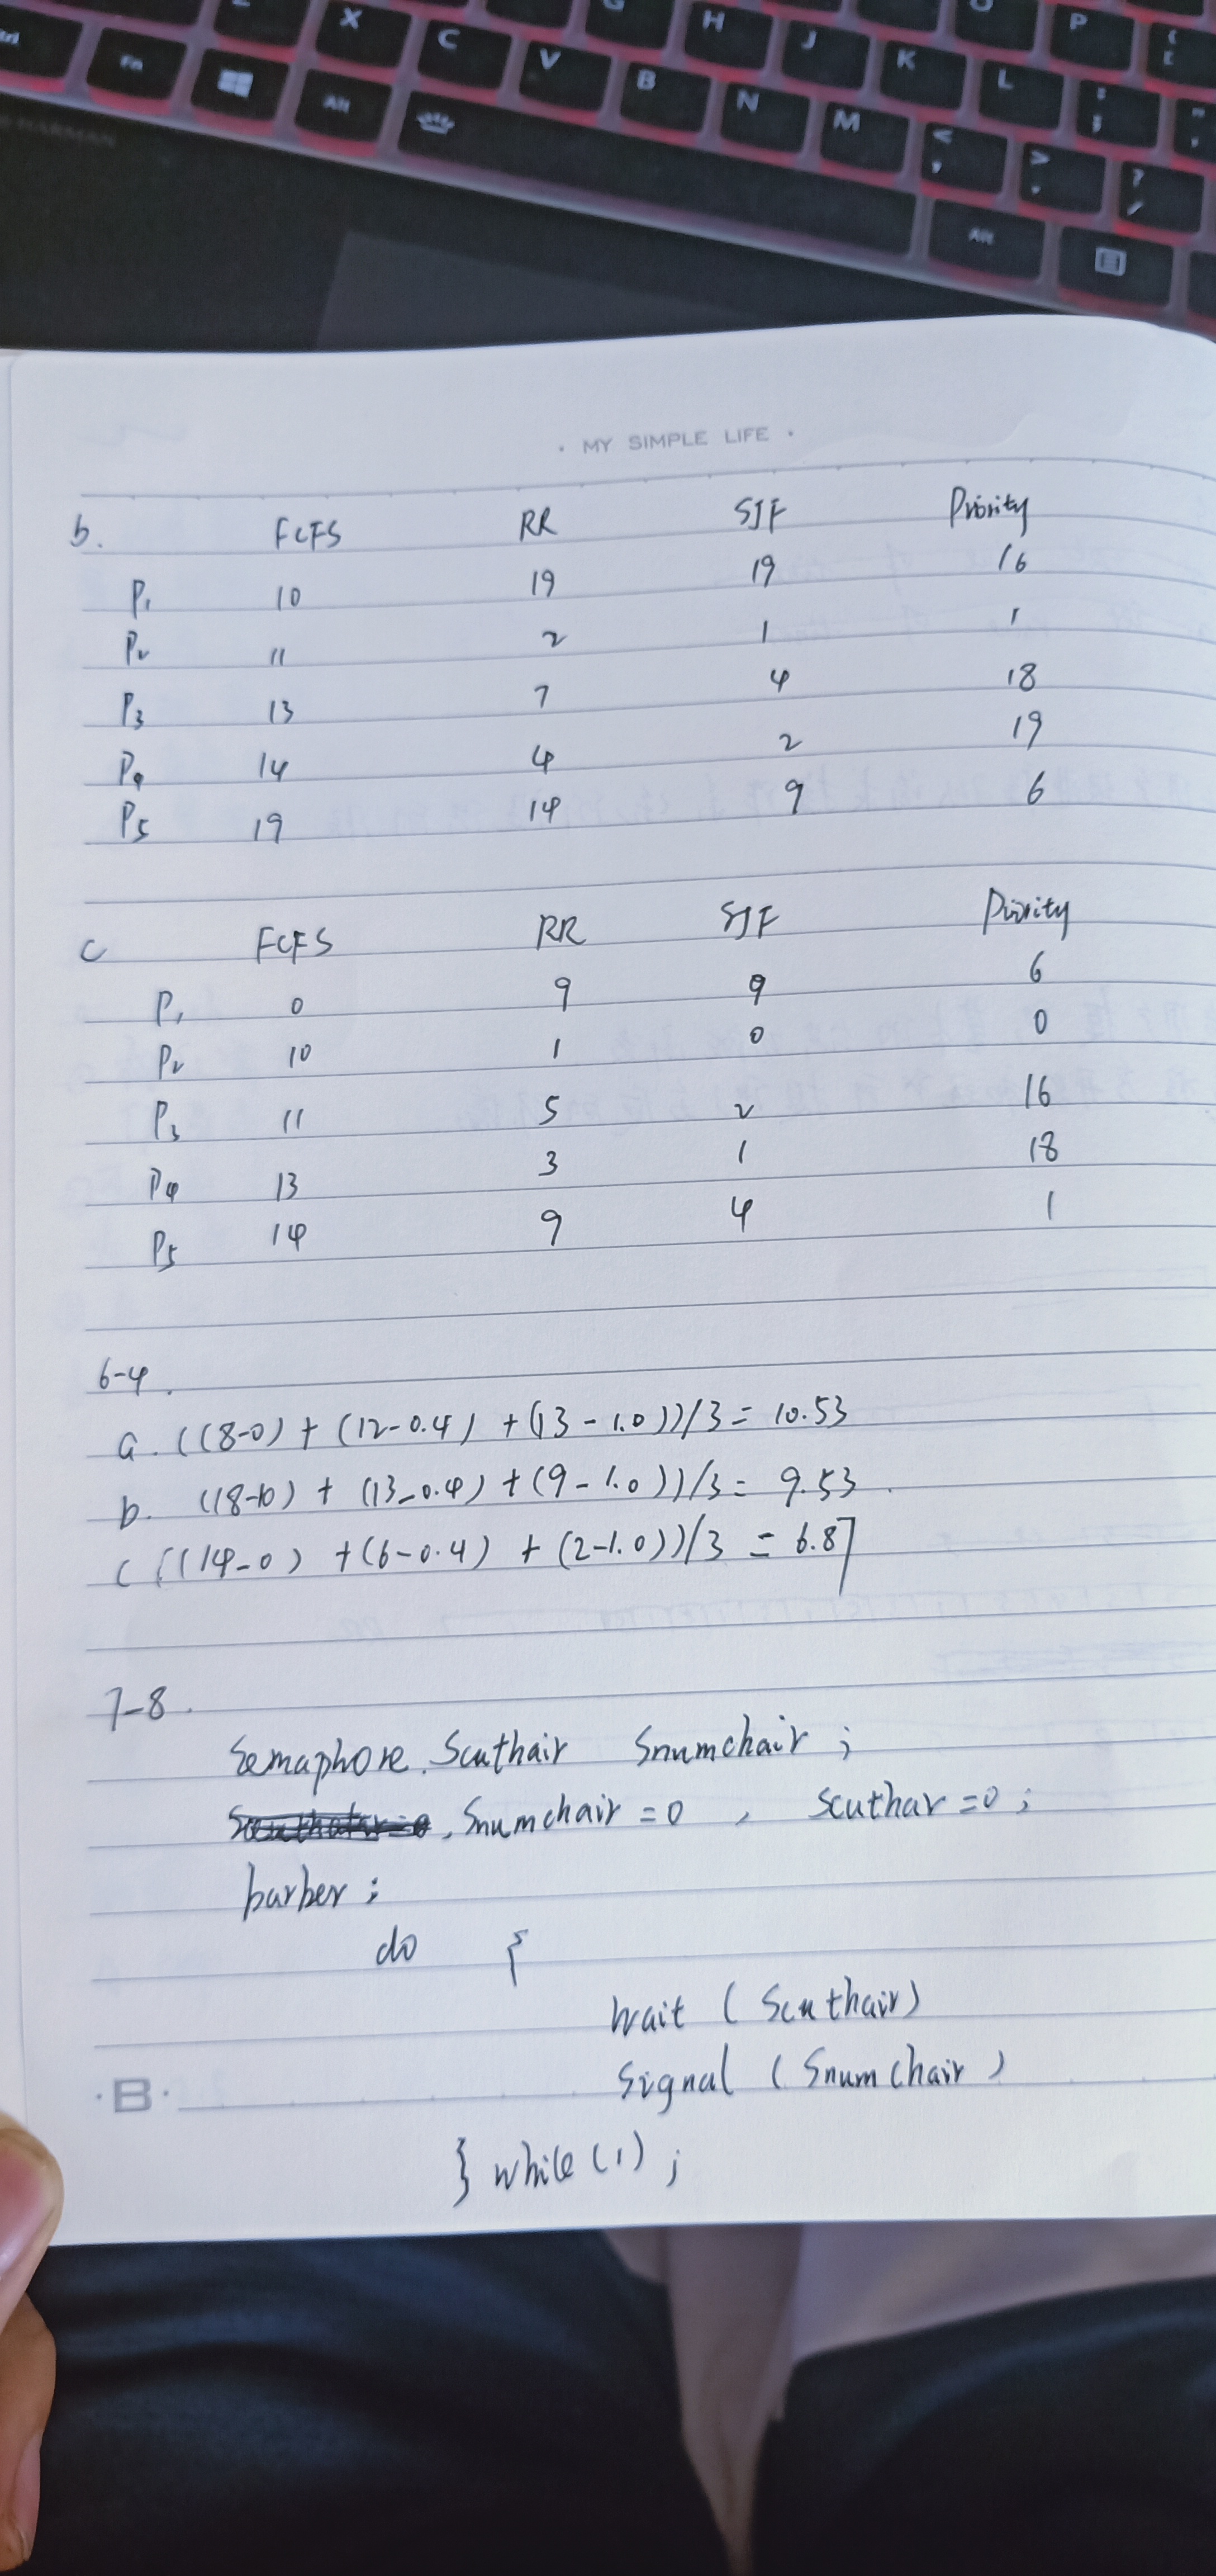 Fn
Alt
X
C
V
B
N
M
H
J
K
L
P
<
,
>
.
?
/
:
;
Alt
HARMAN
· MY SIMPLE LIFE ·
b. FCFS RR SJF Priority
P1 10 19 19 16
P2 11 2 1 1
P3 13 7 4 18
P4 14 4 2 19
P5 19 14 9 6
c FCFS RR SJF Priority
P1 0 9 9 6
P2 10 1 0 0
P3 11 5 2 16
P4 13 3 1 18
P5 14 9 4 1
6-4.
a. ((8-0) + (12-0.4) + (13-1.0))/3 = 10.53
b. ((8-0) + (13-0.4) + (9-1.0))/3 = 9.53.
c ((14-0) + (6-0.4) + (2-1.0))/3 = 6.87
7-8.
Semaphore. Scuthair Snumchair ;
, Snumchair = 0 , Scuthar = 0 ;
barber :
do {
wait ( Scuthair )
Signal ( Snumchair )
} while (1) ;
· B ·